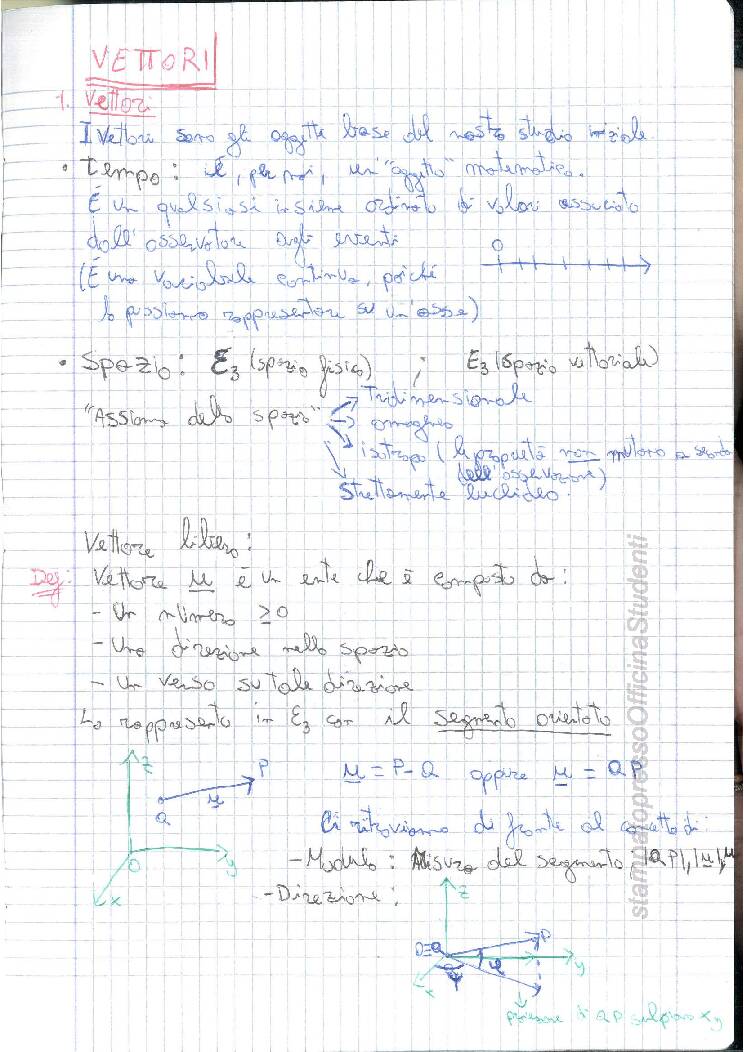 VETTORI
1. Vettori
I Vettori sono gli oggetti base del nostro studio iniziale.
• Tempo: è, per noi, un "oggetto" matematico.
È un qualsiasi insieme ordinato di valori associato
dall'osservatore agli eventi
0
(È una variabile continua, poiché
lo possiamo rappresentare su un'asse)
• Spazio: Ɛ₃ (spazio fisico) ; E₃ (spazio vettoriale)
"Assioma dello spazio" → Tridimensionale
→ omogneo
→ isotropo (le proprietà non mutano a seconda
dell'osservazione)
→ Strettamente Euclideo.
Vettore libero:
Def: Vettore u è un ente che è composto da:
- Un numero ≥0
- Una direzione nello spazio
- Un verso su tale direzione
Lo rappresento in Ɛ₃ con il segmento orientato
z
P
Q
u
O
y
x
u = P-Q oppure u = QP
Ci ritroviamo di fronte al concetto di:
- Modulo: Misura del segmento, |QP|, |u|, u
- Direzione:
z
O≡Q
P
φ
y
x
ψ
proiezione di QP sul piano xy
stampatopressoOfficinaStudenti